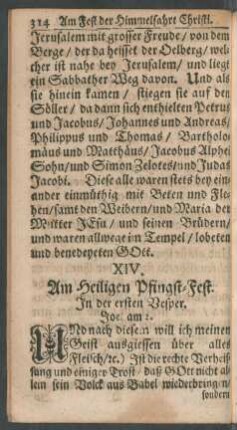 314 Am Fest der Himmelfahrt Christi.
Jerusalem mit grosser Freude/ von dem
Berge/ der da heisset der Oelberg/ wel-
cher ist nahe bey Jerusalem/ und liegt
ein Sabbather Weg davon. Und als
sie hinein kamen/ stiegen sie auf den
Söller/ da dann sich enthielten Petrus
und Jacobus/ Johannes und Andreas/
Philippus und Thomas/ Bartholo-
mäus und Matthäus/ Jacobus Alphei
Sohn/ und Simon Zelotes/ und Judas
Jacobi. Diese alle waren stets bey ein-
ander einmüthig mit Beten und Fle-
hen/ samt den Weibern/ und Maria der
Mutter JEsu/ und seinen Brüdern/
und waren allwege im Tempel/ lobeten
und benedeyeten GOtt.
XIV.
Am Heiligen Pfingst-Fest.
In der ersten Vesper.
Joel am 2.
UNd nach diesem will ich meinen
Geist ausgiessen über alles
Fleisch/ꝛc.) Ist die rechte Verheis-
sung und einiger Trost/ daß GOtt nicht al-
lein sein Volck aus Babel wiederbringen/
sondern